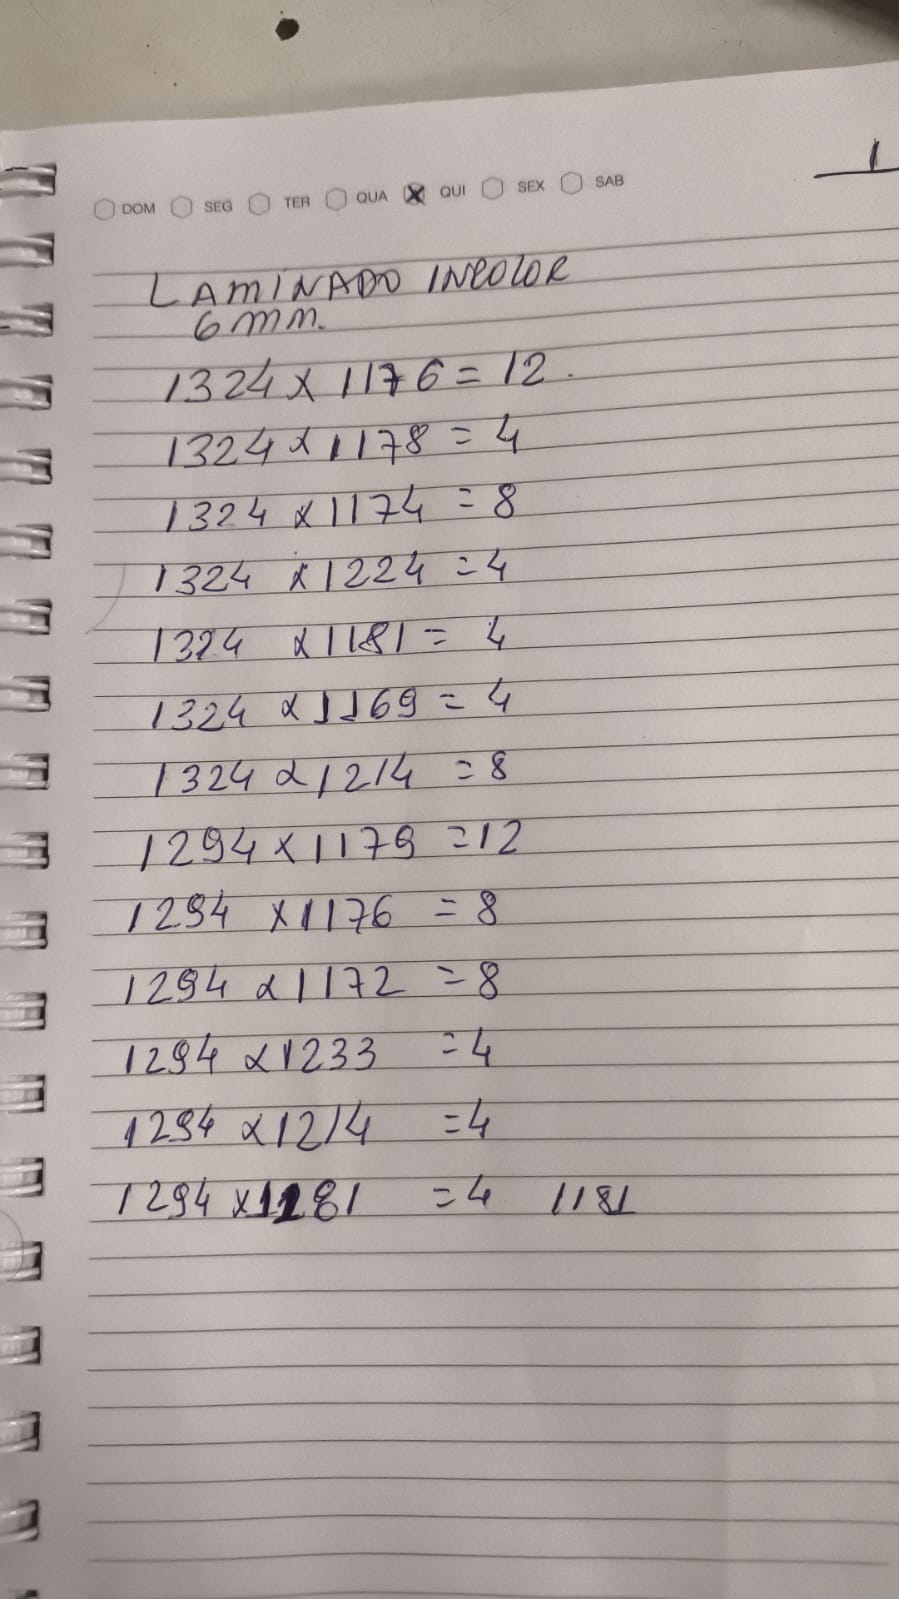 DOM SEG TER QUA QUI SEX SAB
LAMINADO INCOLOR
6mm.
1324 x 1176 = 12.
1324 x 1178 = 4
1324 x 1174 = 8
1324 x 1224 = 4
1324 x 1181 = 4
1324 x 1169 = 4
1324 x 1214 = 8
1294 x 1179 = 12
1294 x 1176 = 8
1294 x 1172 = 8
1294 x 1233 = 4
1294 x 1214 = 4
1294 x 1181 = 4 1181